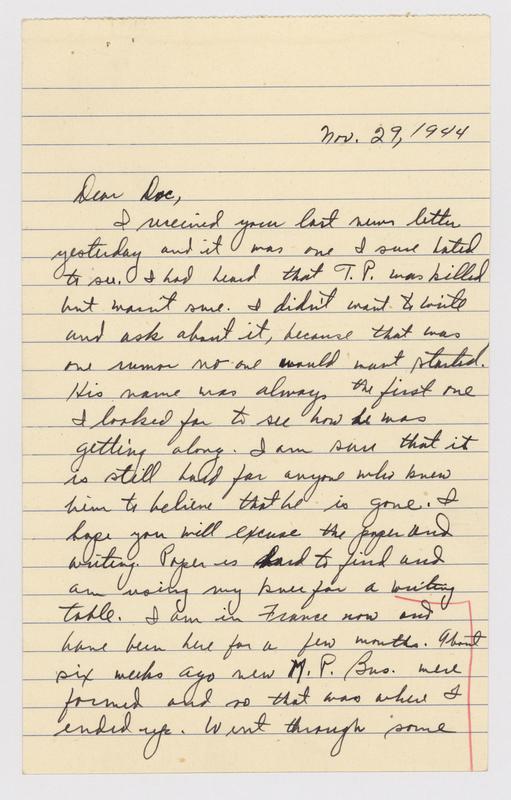 Nov. 29, 1944
Dear Doc,
I received your last news letter
yesterday and it was one I sure hated
to see. I had heard that T.P. was killed
but wasn't sure. I didn't want to write
and ask about it, because that was
one rumor no one would want started.
His name was always the first one
I looked for to see how he was
getting along. I am sure that it
is still hard for anyone who knew
him to believe that he is gone. I
hope you will excuse the paper and
writing. Paper is hard to find and
am using my knee for a writing
table. I am in France now and
have been here for a few months. About
six weeks ago new M.P. Bns. were
formed and so that was where I
ended up. Went through some